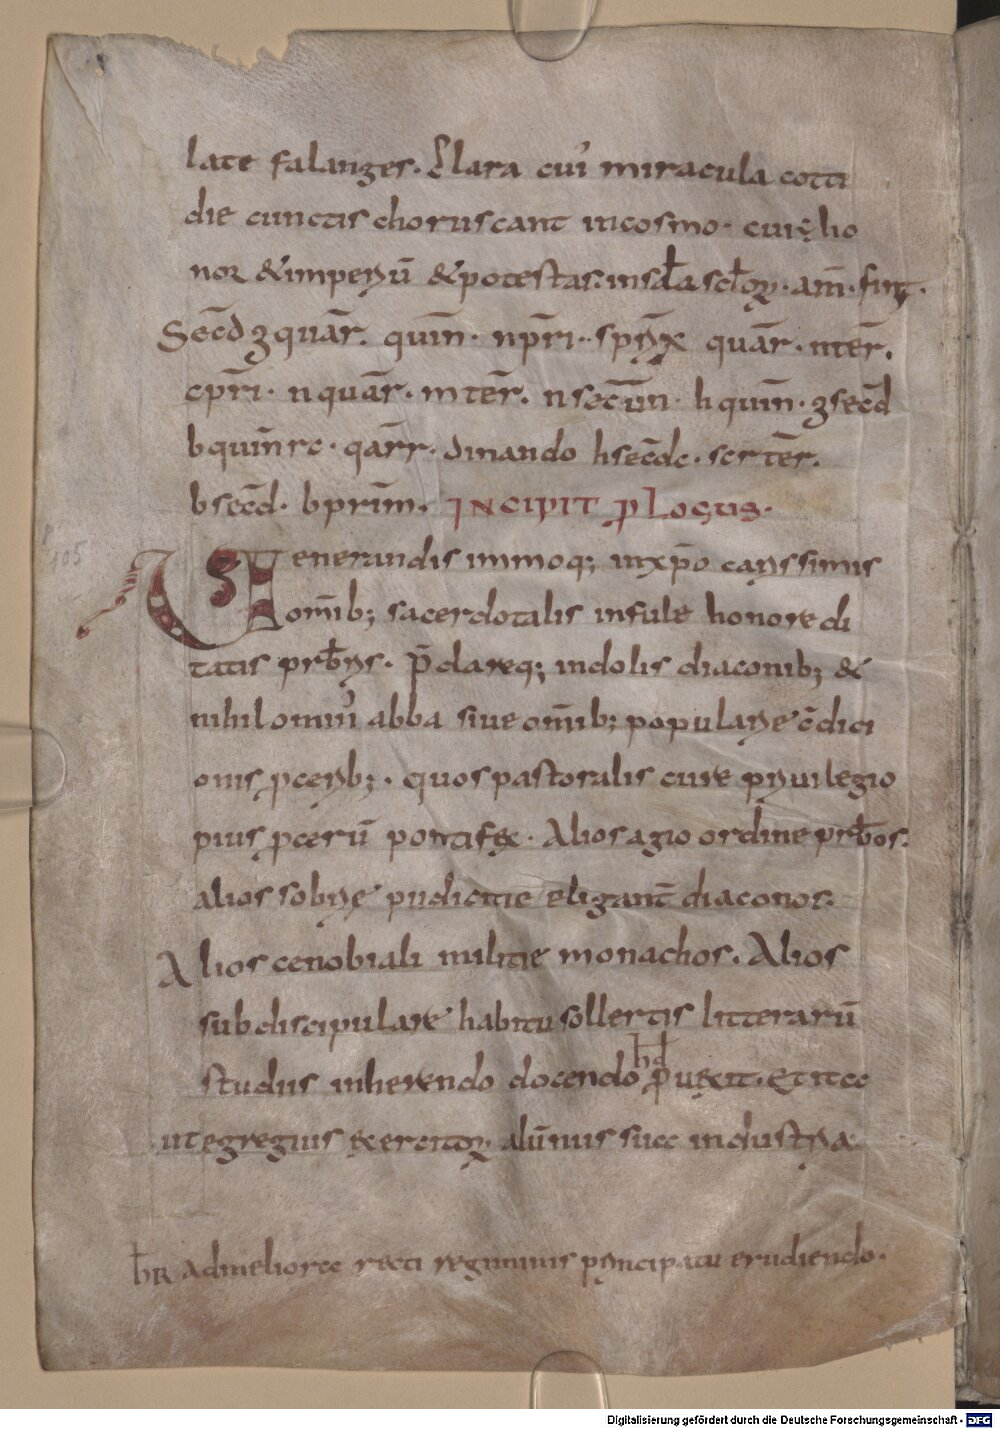 late falanges. Clara cui' miracula cotti
die cunctis choruscant incosmo. cui ÷ ho
nor &imperiū &potestas. insc̄la sc̄loꝝ. am̄. finit.
Sec̄d ʒ quār. quīn. n pr̄i. spn̄x quār. n tēr.
c pr̄i. n quār. m tēr. n secūn. h quīn. ʒ sec̄d
b quīn rc. q ārr. dinando h sec̄d c. scr tēr.
b sec̄d. b prīm. INCIPIT PLOGUS.
Venerandis immoq; inxp̄o carissimis
om̄ib; sacerdotalis infule honore di
tatis prb̄ris. p̄clareq; indolis diaconib; &
nihilomin' abba siue om̄ib; populariẹ c̄dici
onis ꝓcerib;. quos pastoralis cure priuilegio
pius ꝓcerū pontifex. Alios agio ordine prb̄os.
alios sobrię pudicitie eligant̄ diaconos.
Alios cenobiali militie monachos. Alios
sub discipulare habitu sollertis litterarū
studiis inherendo docendo hd puexit. Et itec
ut egregius exercitoꝝ alūnus succ industria
hr Admeliorcc recti regiminis principatu erudiendo.
105
Digitalisierung gefördert durch die Deutsche Forschungsgemeinschaft - DFG